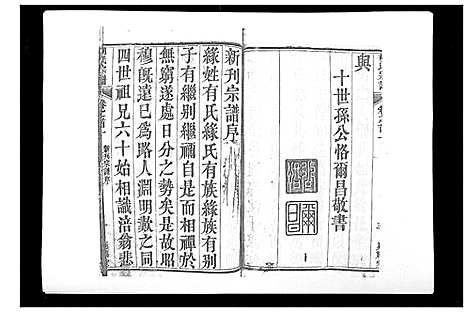 與
十世孫公恪爾昌敬書
新刊宗譜序
緣姓有氏緣氏有族緣族有別
子有繼別繼禰自是而相禪於
無窮遂處日分之勢矣是故昭
穆既遠已為路人淵明數之同
四世祖兄六十始相識涪翁悲
卷之首一
新刊宗譜序